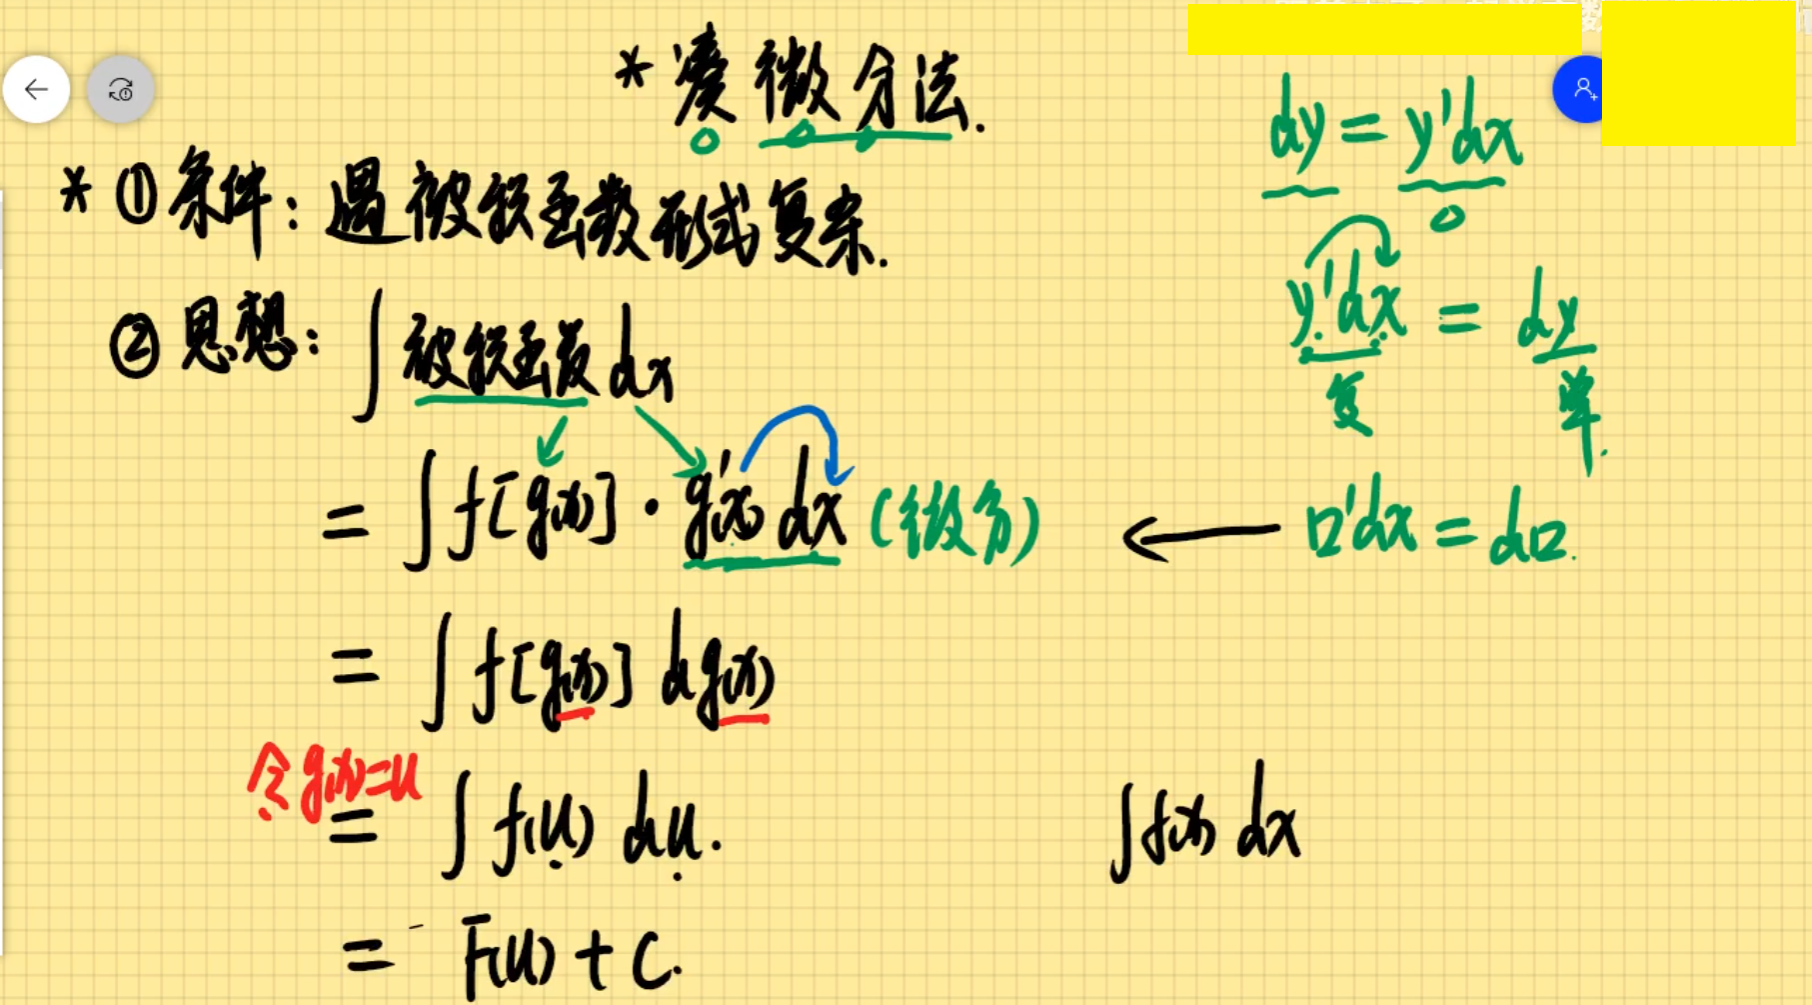 * 凑微分法.
* ① 条件: 遇被积函数形式复杂.
② 思想: ∫ 被积函数 dx
= ∫ f[g(x)] · g'(x) dx (微分)
= ∫ f[g(x)] dg(x)
令 g(x)=u
= ∫ f(u) du.
= F(u) + C.
dy = y'dx
y'dx = dy
复 单.
← □'dx = d□.
∫ f(x) dx